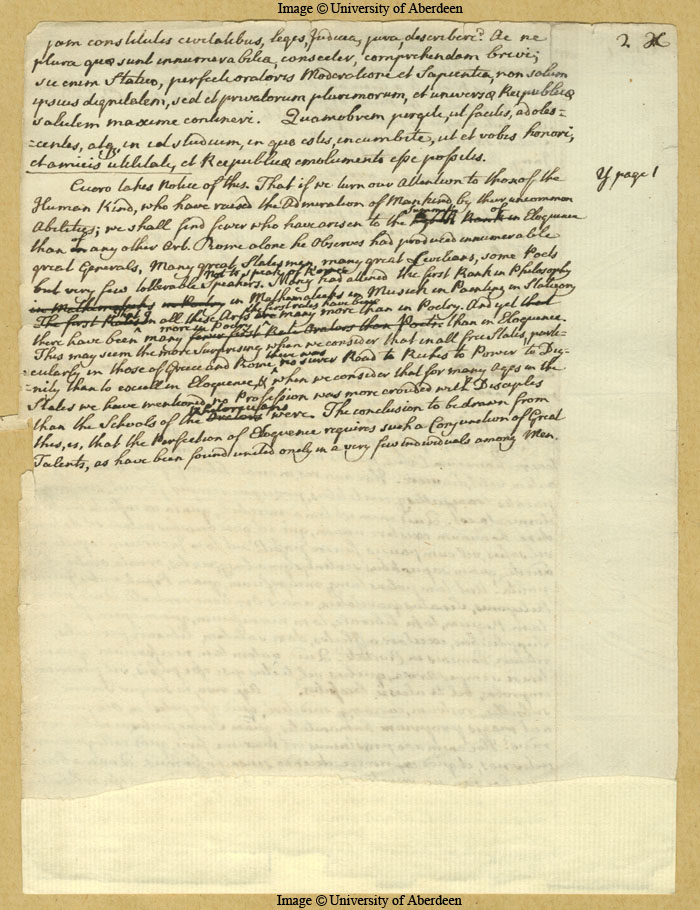 Image © University of Aberdeen
2
jam constitutis civitatibus, leges, Judicia, jura, describere? Ac ne
plura quæ sunt innumerabilia, consecter, comprehendam brevi;
sic enim statuo, perfecti oratores Moderatione et Sapientia, non solum
ipsius dignitatem, sed et privatorum plurimorum, et universæ Reipublicæ
salutem maxime contineri. Quamobrem pergite, ut facitis, adoles-
-centes, atq. in id studium, in quo estis, incumbite, ut et vobis honori,
et amicis utilitate, et Reipublicæ emolumento esse possitis.
y page 1
Cicero takes Notice of this. That if we turn our Attention to those of the
Human Kind, who have raised the Admiration of Mankind by their uncommon
Abilitys; we shall find fewer who have arisen to the Summit of Rank in Eloquence
than of in any other Art. Rome alone he Observes had produced innumerable
great Generals, Many great Statesmen, many great Civilians, some Poets
but very few tollerable Speakers. Not to speak of Rome Many had attaind the first Rank in Philosophy
in Mathematicks in Poetry in Mathematicks in Musick in Painting in Statuary
The first Rates in all these Arts the first rates have been are many more than in Poetry. And yet that
there have been many more in Poetry fewer first Rate Orators than Poets. than in Eloquence.
This may seem the more Surprising when we consider that in all free States, parti-
-cularly in those of Greece and Rome, there was no surer Road to Riches to Power to Dig-
-nity than to excell in Eloquence, & when we consider that for many Ages in the
States we have mentioned, no Profession was more crouded with Disciples
than the Schools of the Rhetoricians Orators were. The conclusion to be drawn from
this, is, that the Perfection of Eloquence requires such a Conjunction of Great
Talents, as have been found united only in a very few individuals among Men.
Image © University of Aberdeen